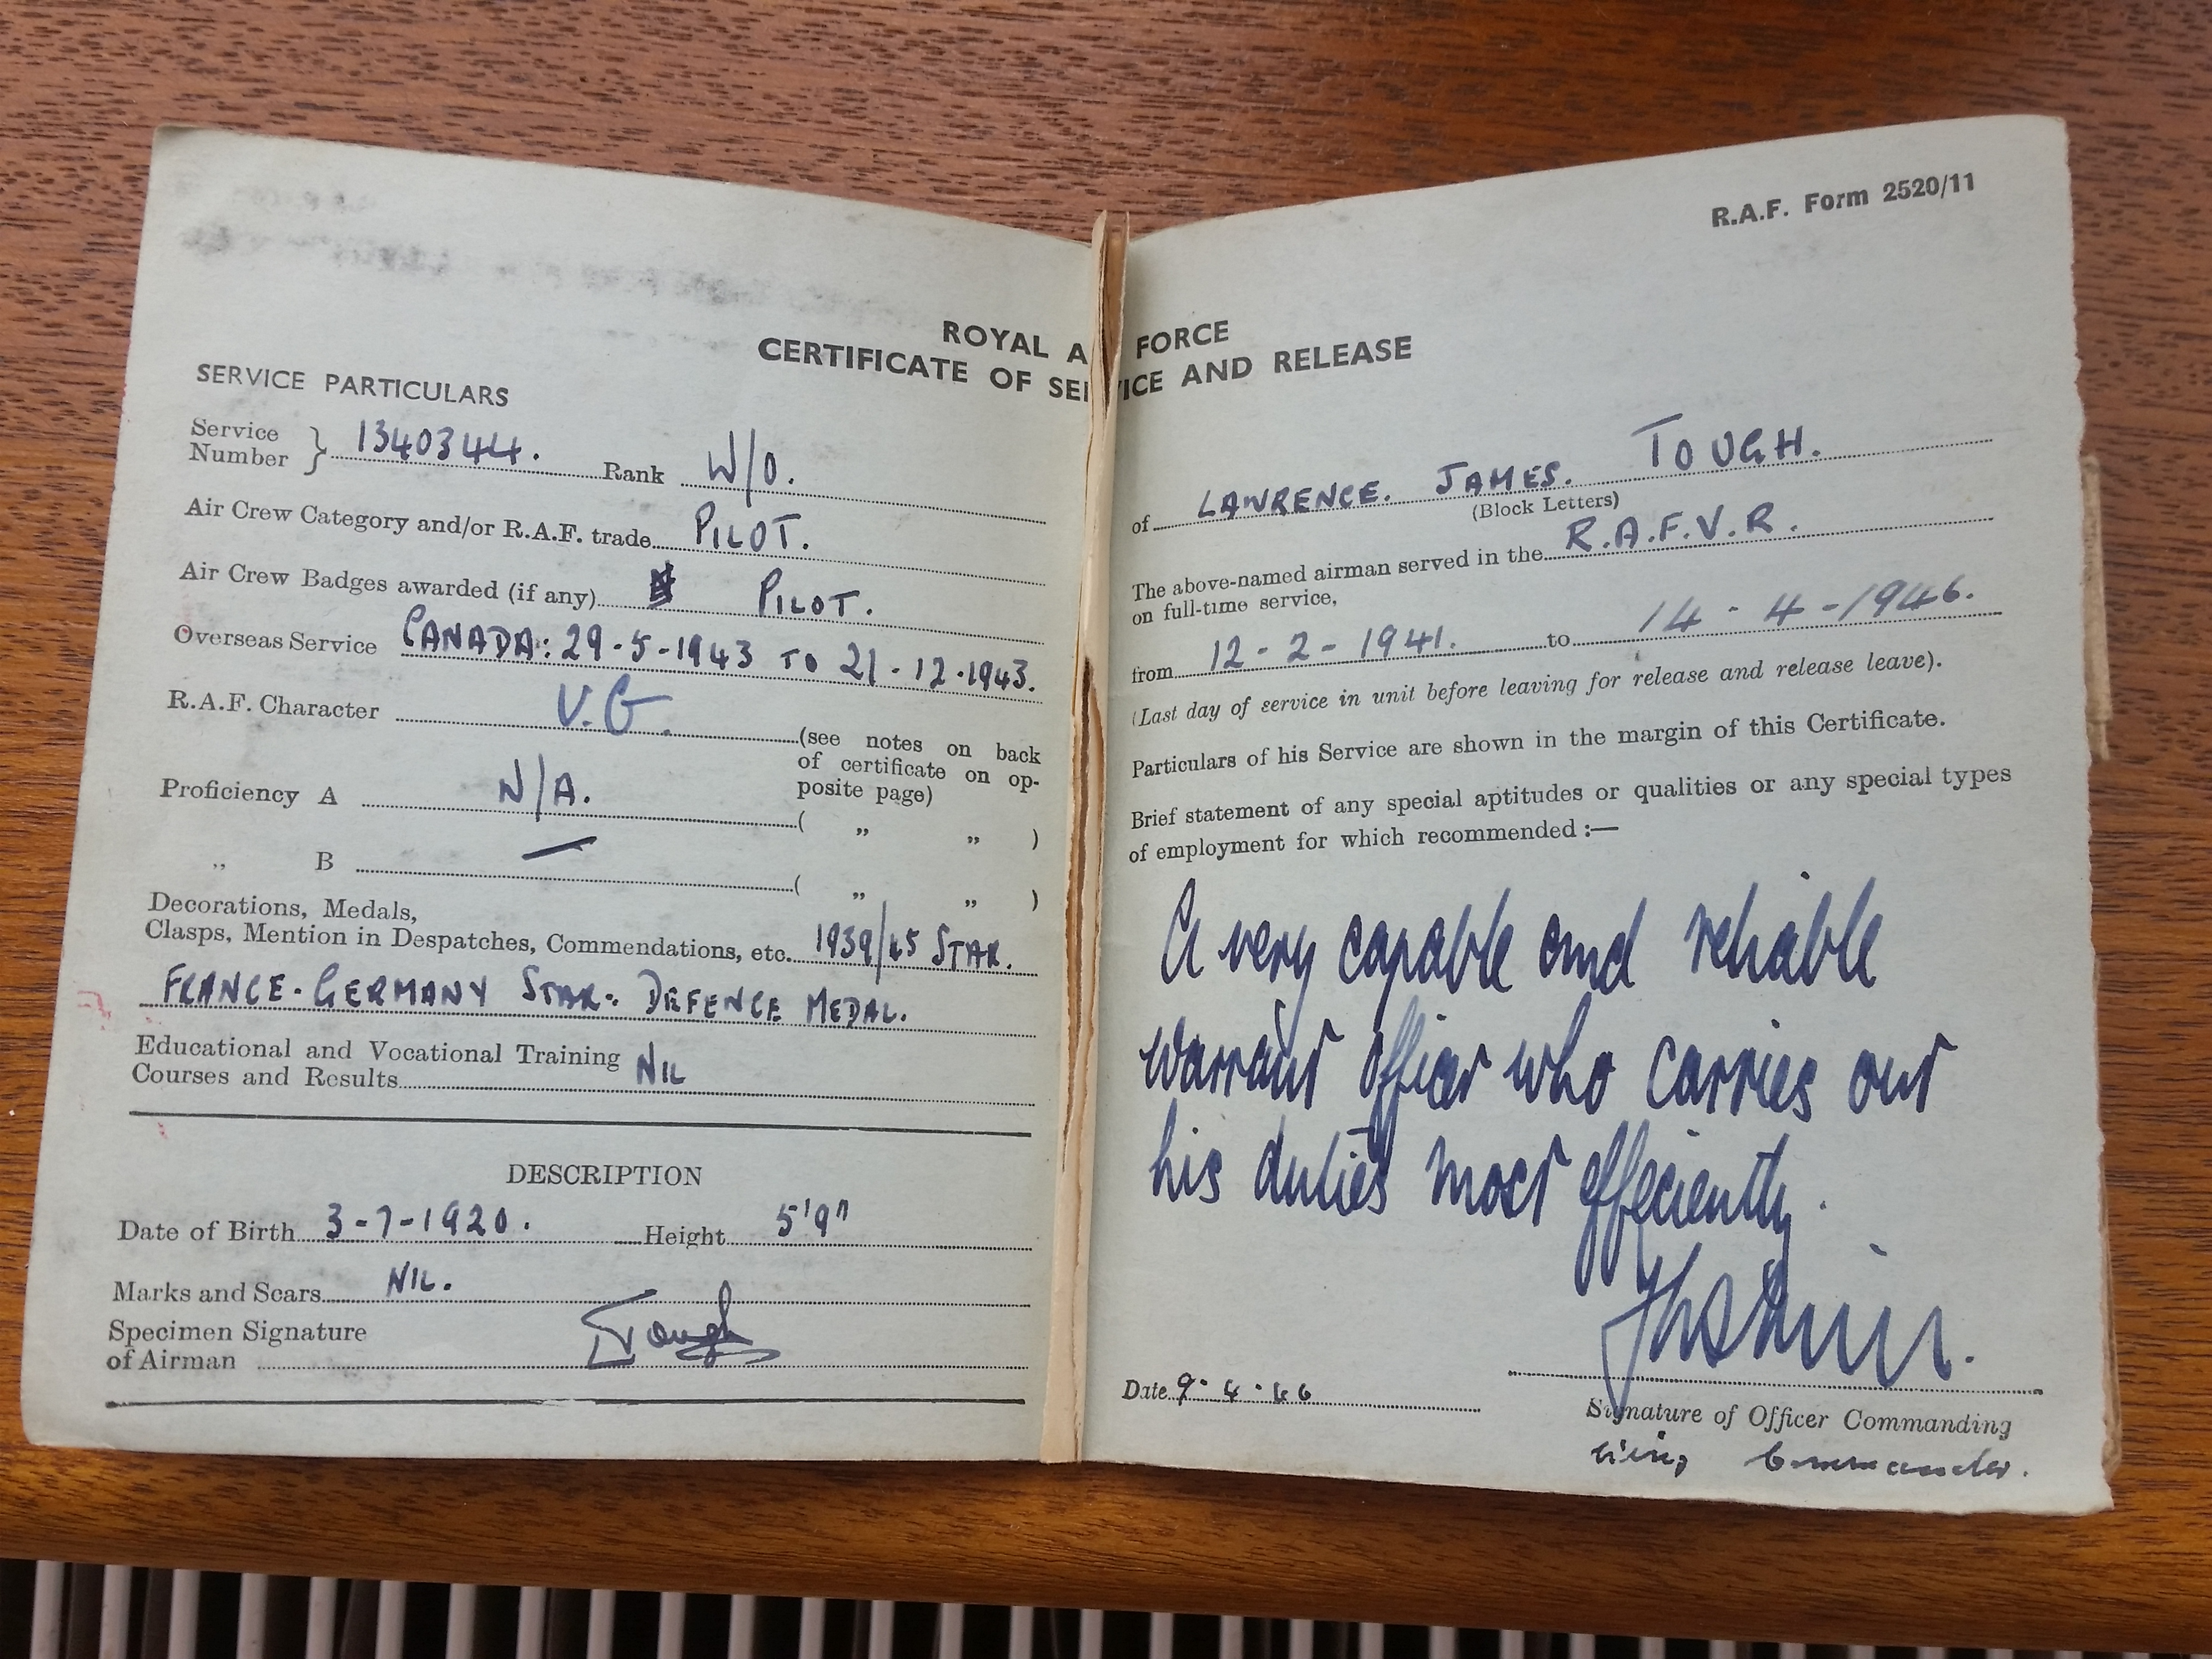 R.A.F. Form 2520/11
ROYAL A FORCE
CERTIFICATE OF SER VICE AND RELEASE
SERVICE PARTICULARS
Service Number } 1340344. Rank W/O.
Air Crew Category and/or R.A.F. trade PILOT.
Air Crew Badges awarded (if any) PILOT.
Overseas Service CANADA: 29-5-1943 TO 21-12-1943.
R.A.F. Character V.G.
(see notes on back
of certificate on op-
posite page)
Proficiency A N/A. ( „ „ )
„ B — ( „ „ )
Decorations, Medals,
Clasps, Mention in Despatches, Commendations, etc. 1939/45 STAR.
FRANCE-GERMANY STAR. DEFENCE MEDAL.
Educational and Vocational Training
Courses and Results NIL
DESCRIPTION
Date of Birth 3-7-1920. Height 5'9"
Marks and Scars NIL.
Specimen Signature
of Airman Tough
of LAWRENCE. JAMES. TOUGH.
(Block Letters)
The above-named airman served in the R.A.F.V.R.
on full-time service,
from 12-2-1941. to 14-4-1946.
(Last day of service in unit before leaving for release and release leave).
Particulars of his Service are shown in the margin of this Certificate.
Brief statement of any special aptitudes or qualities or any special types
of employment for which recommended :—
A very capable and reliable
warrant officer who carries out
his duties most effeciently.
Date 9.4.46
Signature of Officer Commanding
Wing Commander.